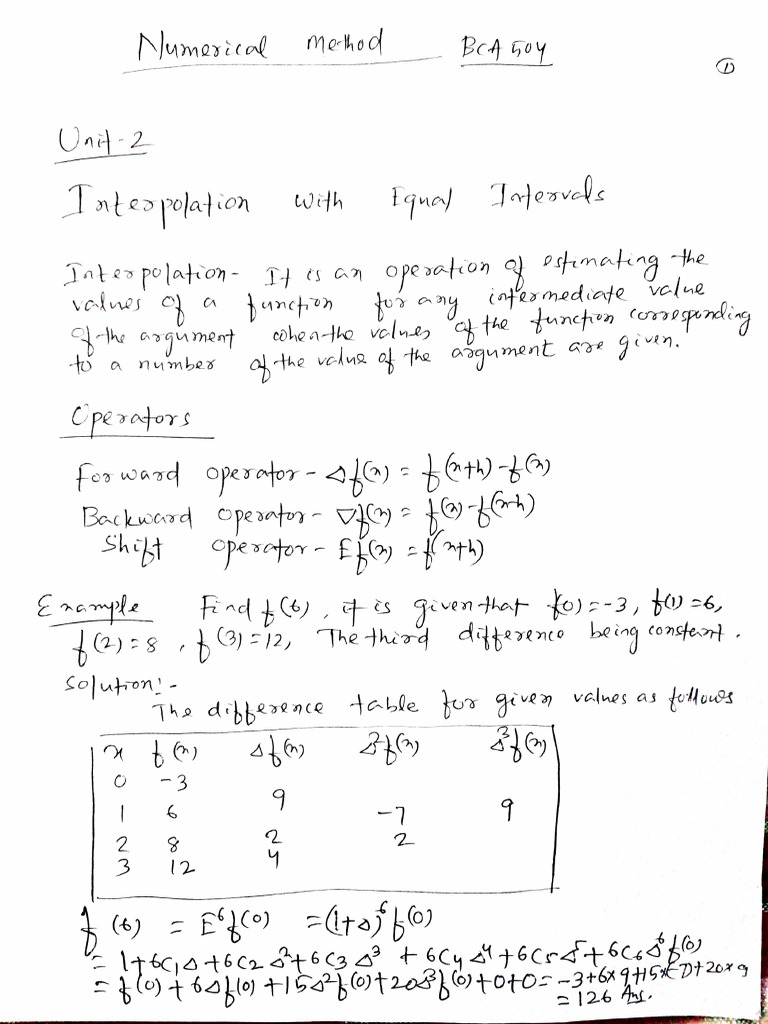 Numerical method BCA 504
①
Unit-2
Interpolation with Equal Intervals
Interpolation- It is an operation of estimating the
values of a function for any intermediate value
of the argument when the values of the function corresponding
to a number of the value of the argument are given.
Operators
Forward operator - Δf(x) = f(x+h) - f(x)
Backward operator - ∇f(x) = f(x) - f(x-h)
Shift operator - Ef(x) = f(x+h)
Example Find f(6), it is given that f(0) = -3, f(1) = 6,
f(2) = 8, f(3) = 12, The third difference being constant.
Solution:-
The difference table for given values as follows
x f(x) Δf(x) Δ²f(x) Δ³f(x)
0 -3
1 6 9 -7 9
2 8 2 2
3 12 4
f(6) = E⁶f(0) = (1+Δ)⁶f(0)
= 1+6C₁Δ+6C₂Δ²+6C₃Δ³+6C₄Δ⁴+6C₅Δ⁵+6C₆Δ⁶f(0)
= f(0)+6Δf(0)+15Δ²f(0)+20Δ³f(0)+0+0 = -3+6×9+15×(-7)+20×9
= 126 Ans.